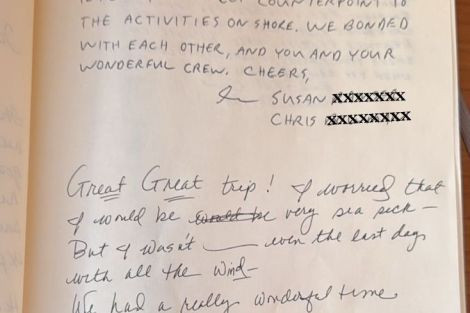 COUNTERPOINT TO
THE ACTIVITIES ON SHORE. WE BONDED
WITH EACH OTHER, AND YOU AND YOUR
WONDERFUL CREW. CHEERS,
SUSAN XXXXXXX
CHRIS XXXXXXXX
Great Great trip! I worried that
I would be would be very sea sick –
But I wasn't ___ even the last day
with all the wind –
We had a really wonderful time